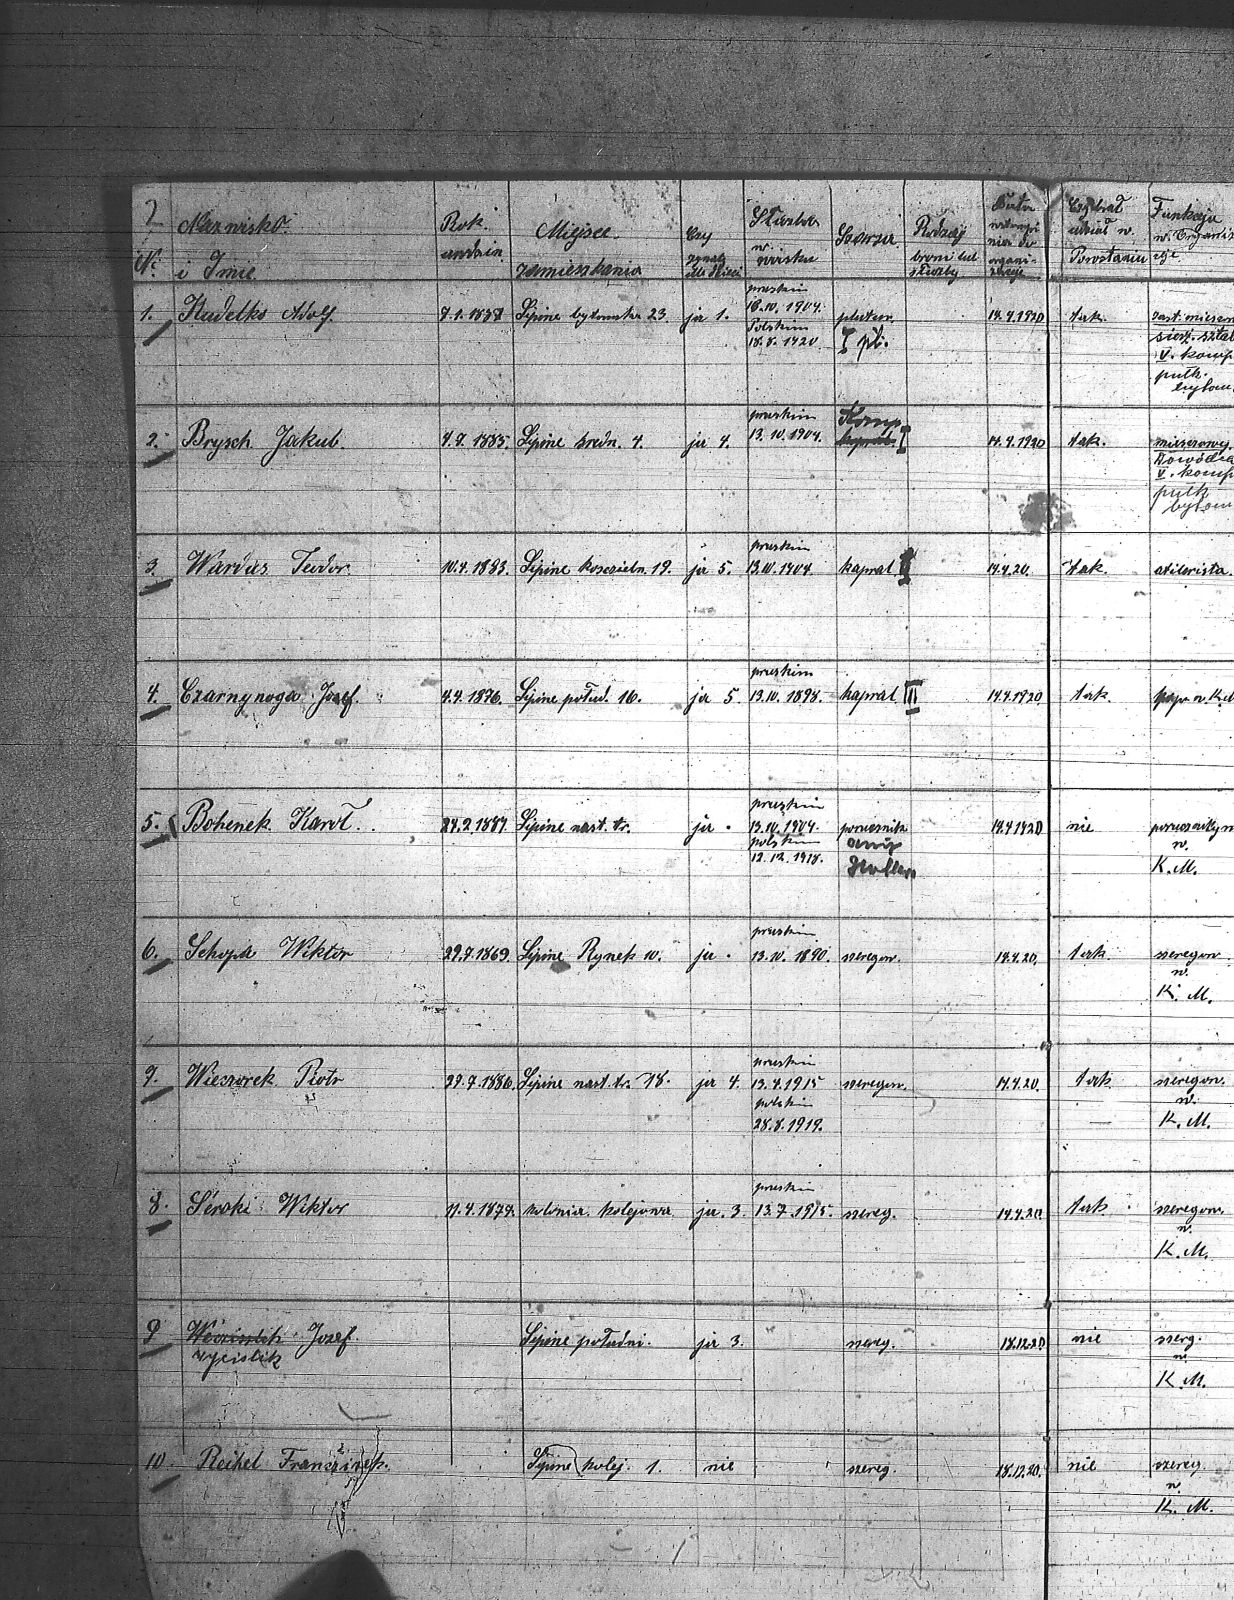 Nazwisko i Imie
Rok urodzin
Miejsce zamieszkania
Czy żonaty ile dzieci
Służba w wojsku
Szarża
Rodzaj broni lub służby
Data wstąpienia do organizacji
Czy brał udział w Powstaniu
Funkcja w Organiz
1. Kudelko Adolf 7.1.1887 Lipine bytomska 23 ja 1. pruskim 16.10.1904. Polskim 18.8.1920 pluton. I pl. 14.4.1920 tak. zast. miesco
V. komp
pułk. bytom.
2. Brysch Jakub 4.7.1885. Lipine średn. 4. ja 4. pruskim 13.10.1904. Komp I 14.4.1920 tak. miescowy.
Dowódca
V. komp
pułk
bytom
3. Wardas Teodor 10.4.1883. Lipine koscieln. 19. ja 5. pruskim 13.10.1904. kapral II 14.4.20. tak
4. Czarnynoga Josef. 4.4.1876. Lipine połud. 16. ja 5. pruskim 13.10.1898. kapral III 14.4.1920 tak.
5. Bohenek Karol. 24.2.1884. Lipine nast. tr. ja. pruskim 13.10.1904. polskim 12.12.1918. porucznik armji Hallera 14.4.1920 nie
w.
K. M.
6. Schopa Wiktor 29.7.1869. Lipine Rynek 10. ja. pruskim 13.10.1890. szeregow. 14.4.20. tak. szeregow.
w.
K. M.
7. Wieczorek Piotr 29.7.1886. Lipine nast. tr. 18. ja 4. pruskim 13.4.1915 polskim 28.8.1919. szeregow. 14.4.20. tak szeregow.
w.
K. M.
8. Seroki Wiktor 11.4.1874. kolonia kolejowa ja. 3. pruskim 13.7.1915. szereg. 14.4.20 tak szeregow.
w.
K. M.
9 Josef Lipine południ. ja 3. szereg. 18.12.20 nie szerg.
Wycislik
w.
K. M.
10. Reihel Franciszek. Lipine kolej. 1. nie szereg. 18.12.20. nie szereg
w.
K. M.